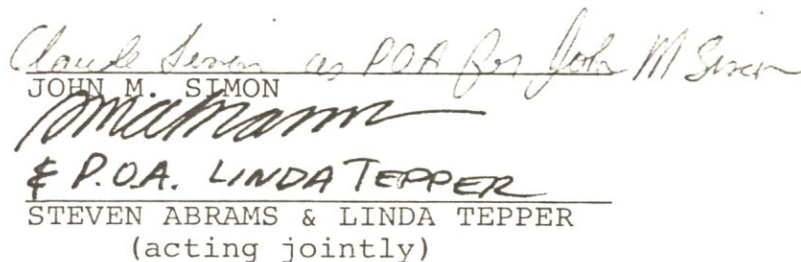 Claude Simon as POA for John M Simon
JOHN M. SIMON
& P.O.A. LINDA TEPPER
STEVEN ABRAMS & LINDA TEPPER
(acting jointly)